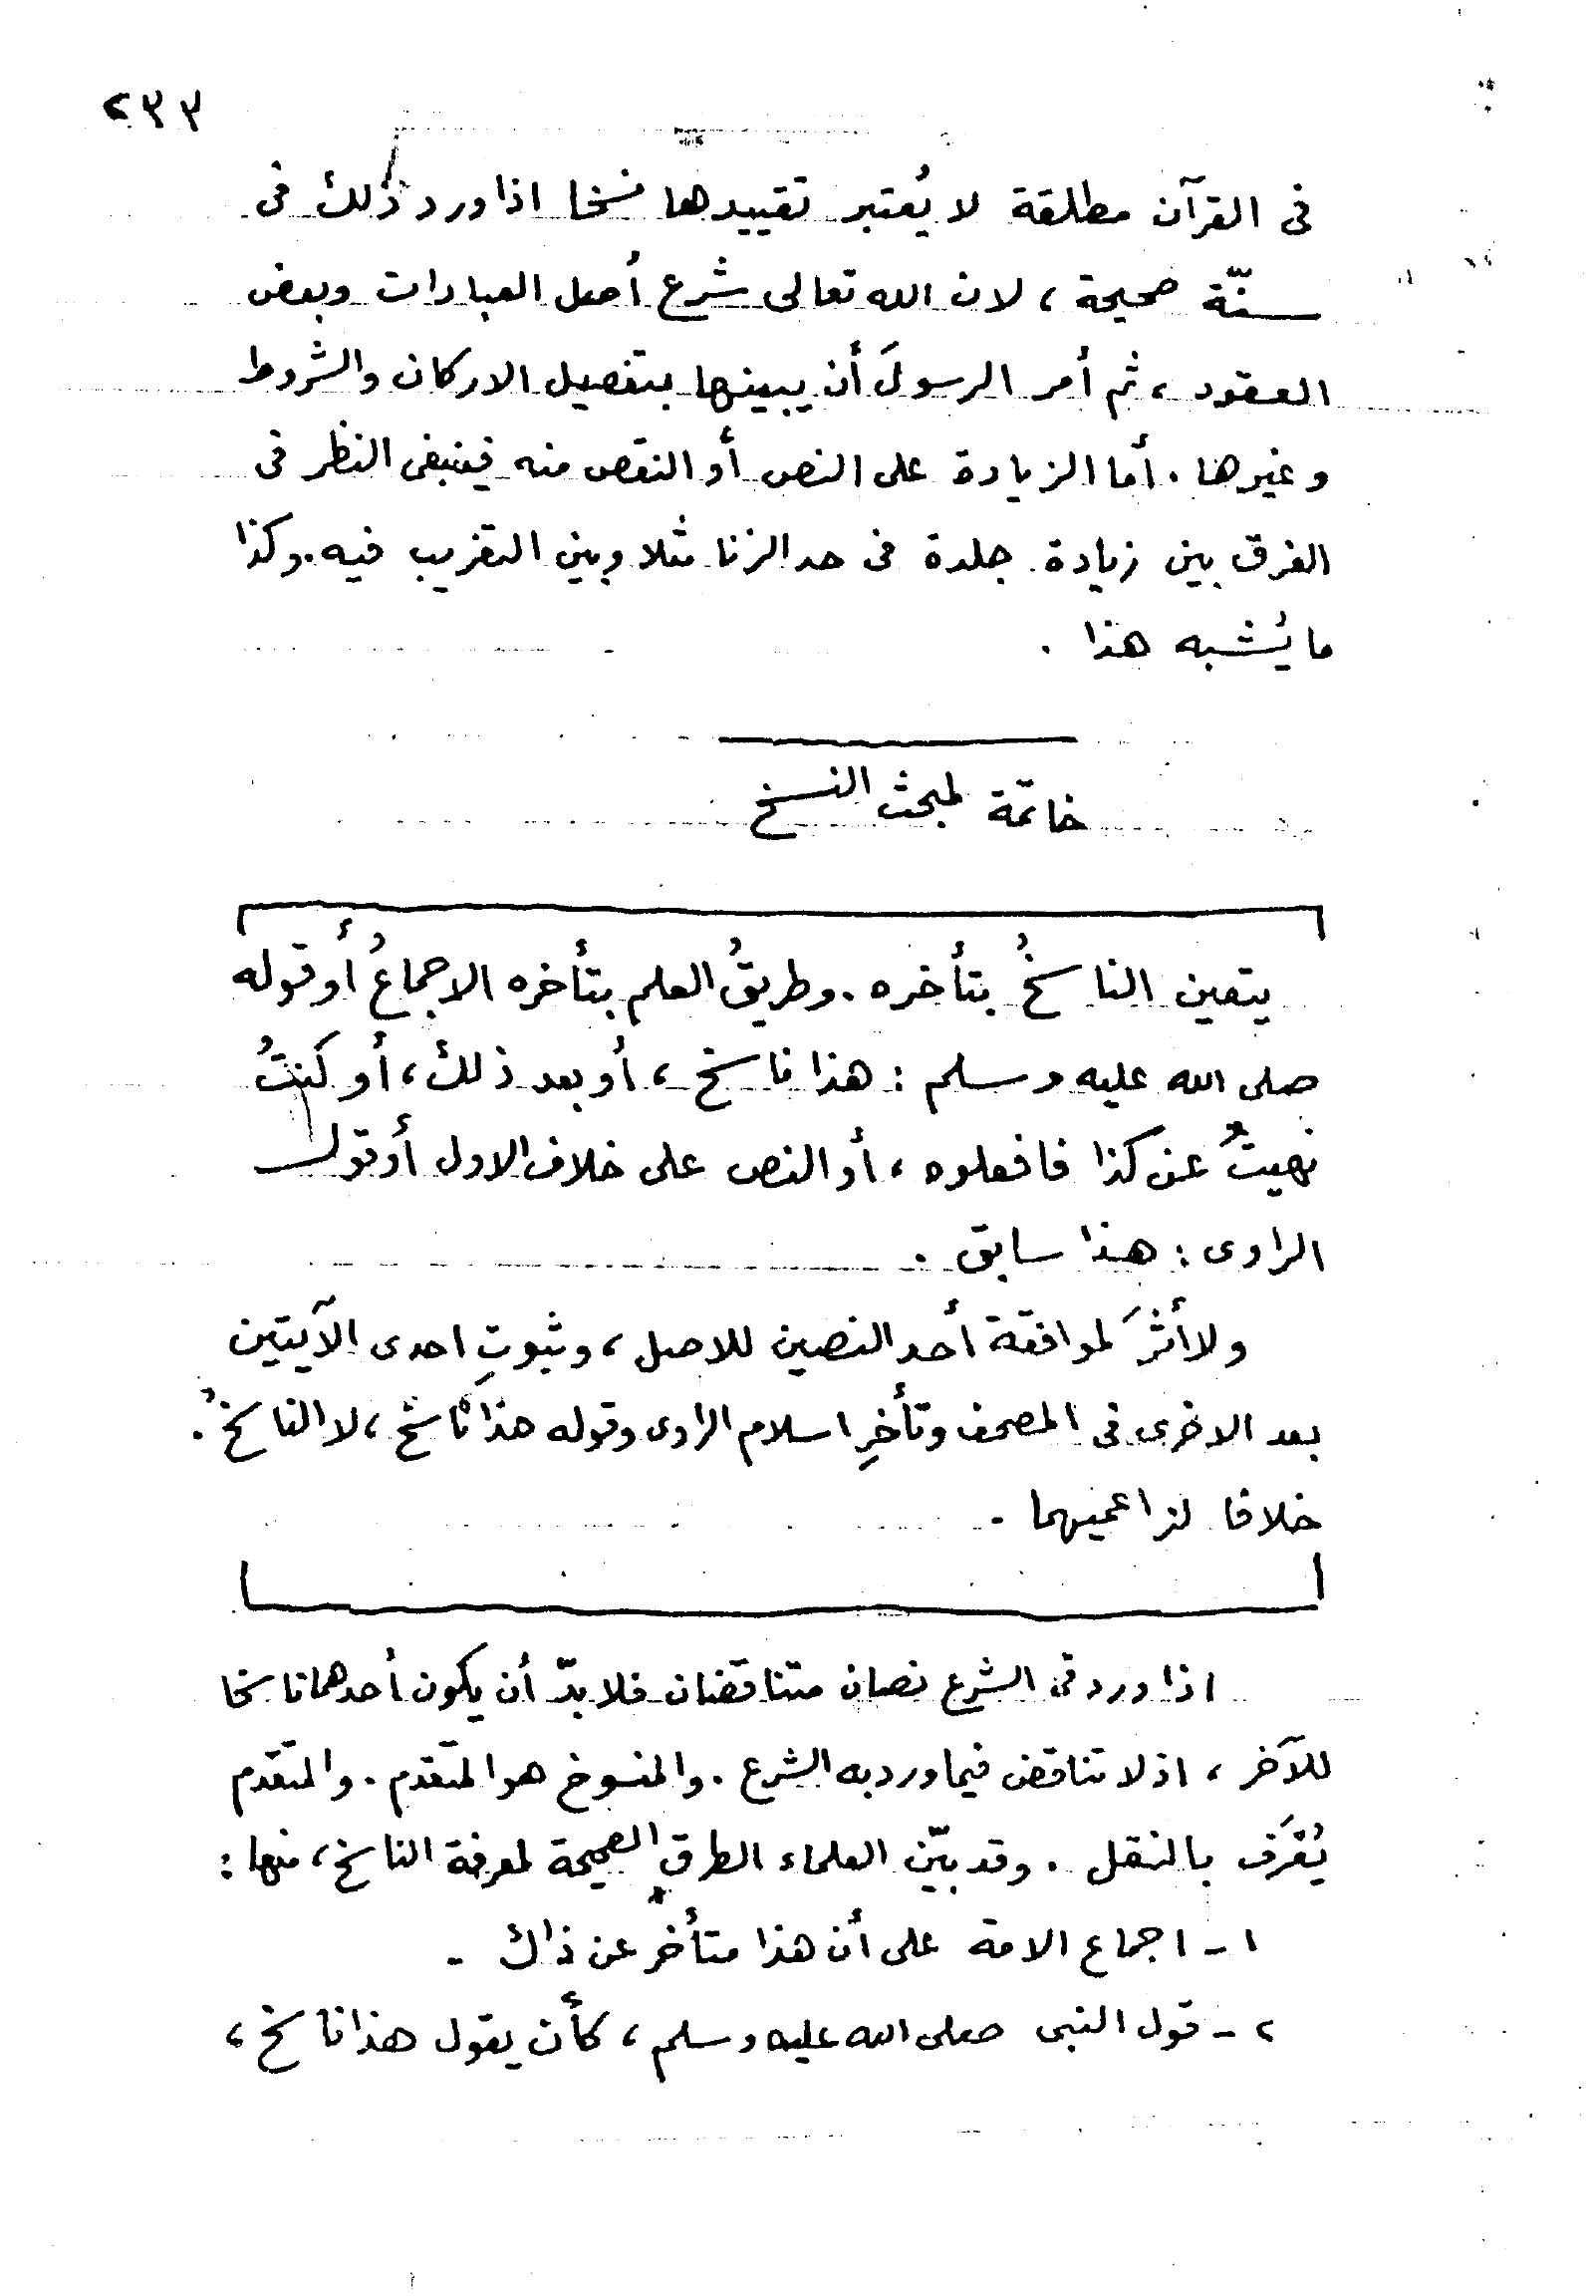 ٢٣٣
فى القرآن مطلقة لا يُعتبر تقييدها نسخا اذا ورد ذلك فى
سنّة صحيحة ، لان الله تعالى شرع أصل العبادات وبعض
العقود ، ثم أمر الرسولَ أن يبينها بتفصيل الاركان والشروط
وغيرها . أما الزيادة على النص أو النقص منه فينبغى النظر فى
الفرق بين زيادة جلدة فى حد الزنا مثلا وبين التغريب فيه . وكذا
ما يُشبه هذا .
خاتمة لمبحث النسخ
يتعين الناسخُ بتأخره . وطريقُ العلم بتأخره الاجماعُ أو قوله
صلى الله عليه وسلم : هذا ناسخ ، أو بعد ذلك ، أو كنتُ
نهيتُ عن كذا فافعلوه ، أو النص على خلاف الاول أو قول
الراوى : هذا سابق .
ولا أثرَ لموافقة أحد النصين للاصل ، وثبوتِ احدى الآيتين
بعد الاخرى فى المصحف وتأخرِ اسلام الراوى وقوله هذا ناسخ ، لا الناسخُ .
خلافا لزاعميهما .
اذا ورد فى الشرع نصان متناقضان فلا بدّ أن يكون أحدهما ناسخا
للآخر ، اذ لا تناقض فيما ورد به الشرع . والمنسوخ هو المتقدم . والمتقدم
يُعْرَف بالنقل . وقد بيّن العلماء الطرق الصحيحة لمعرفة الناسخ ، منها :
١ - اجماع الامة على أن هذا متأخر عن ذاك .
٢ - قول النبى صلى الله عليه وسلم ، كأن يقول هذا ناسخ ،